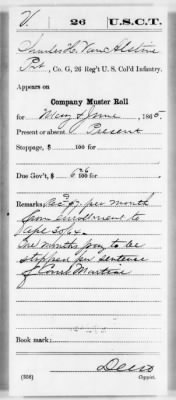 V. 26 U.S.C.T.
Charles H. Van Alstine
Pvt, Co. G, 26 Reg't U. S. Col'd Infantry.
Appears on
Company Muster Roll
for May & June, 1865.
Present or absent Present
Stoppage, $ 100 for
Due Gov't, $ 100 for
Remarks: per month
from enrollment to
One months pay to be
stopped per sentence
of Court Martial
Book mark:
(358) Copyist.